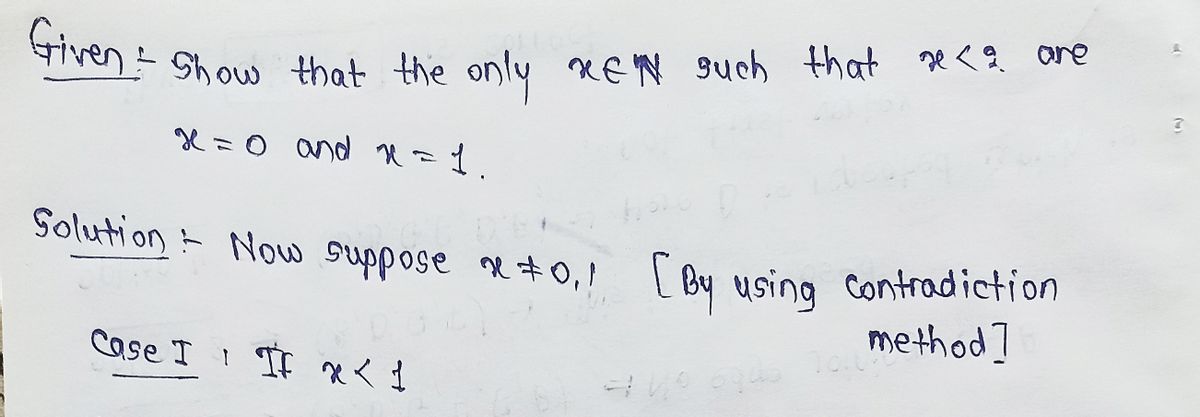 Given :- Show that the only x∈N such that x<2 are
x = 0 and x = 1.
Solution :- Now suppose x ≠ 0,1 [By using contradiction
method]
Case I : If x < 1